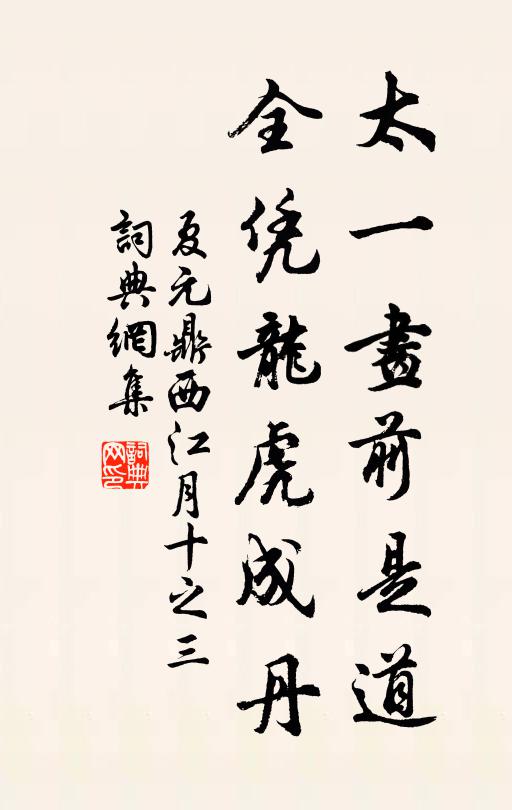 太一畫前是道
全凭龍虎成丹
夏元鼎西江月十之三
詞典網集
詞典网印